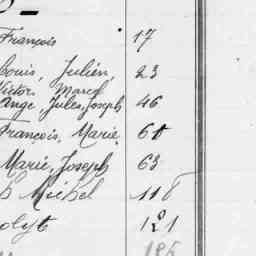 François 17
Louis, Julien, 23
Victor Marcel
Ange, Jules, Joseph 46
François, Marie,
Marie, Joseph 63
Michel 118
olyte 121